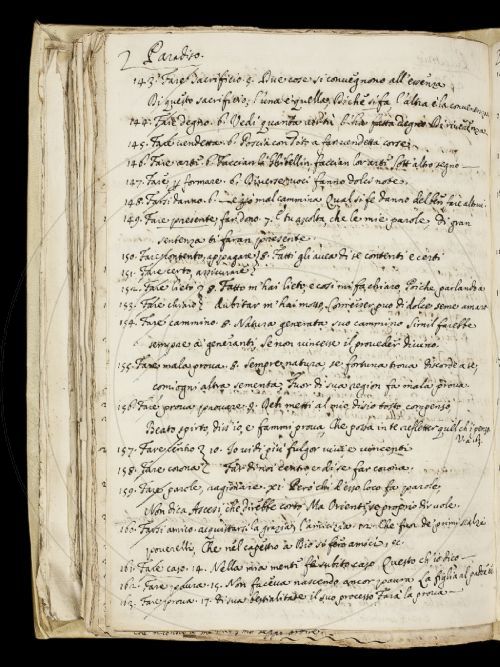 2 Paradiso.
143. Fare Sacrificio. 5. Due cose si convegnono all'essenza
Di questo sacrificio; l'una è quella, Di che si fa l'altra è la convenenza
144. Fare degno. 6. Vedi quanta virtù l'ha fatto degno Di riverenza
145. Fare vendetta. 6. Poscia con Tito a far vendetta corse
146. Fare arte. 6. Faccian li Ghibellin, faccian lor arte Sott' altro segno
147. Fare formare. 6. Diverse voci fanno dolci note
148. Farsi danno. 6. mal cammina Qual si fe danno del ben fare altrui
149. Fare presente, far dono. 7. E tu ascolta che le mie parole Di gran
sentenza ti faran presente
150. Fare contento, appagare 8. Fatti gli avea di se contenti e certi
151. Fare certo, assicurare
152. Fare lieto 8. Fatto m'hai lieto, e così mi fa chiaro, Poiche parlando a
153. Fare chiaro dubitar m'hai mosso, Com'esser può di dolce seme amaro
154. Fare cammino. 8. Natura generata suo cammino Simil farebbe
sempre a' generanti, Se non vincesse il proveder divino.
155. Fare mala prova. 8. sempre natura, se fortuna trova discorde a se,
com'ogni altra sementa, Fuor di sua region fa mala prova
156. Fare prova provare. 9. Deh metti al mio disio tosto compenso,
Beato spirto, diss'io, e fammi prova, Che possa in te refletter quel ch'i penso
157. Fare centro 10. Io vidi più fulgor vivi e vincenti
158. Fare corona Far di noi centro e di se far corona
159. Fare parole, ragionare. XI. Però chi d'esso loco fa parole
Non dica Ascesi, che direbbe corto, Ma Oriente, se proprio dir vuole.
160. Farsi amico acquistarsi la grazia, l'amicizia. 12. Che fur de' primi scalzi
poverelli, Che nel capestro a Dio si fero amici, ec.
161. Fare caso. 14. Nella mia mente fe subito caso Questo ch'io dico
162. Fare paura. 15. Non faceva nascendo ancor paura La figlia al padre
163. Fare prova. 17. Di sua bestialitate il suo processo Farà la prova